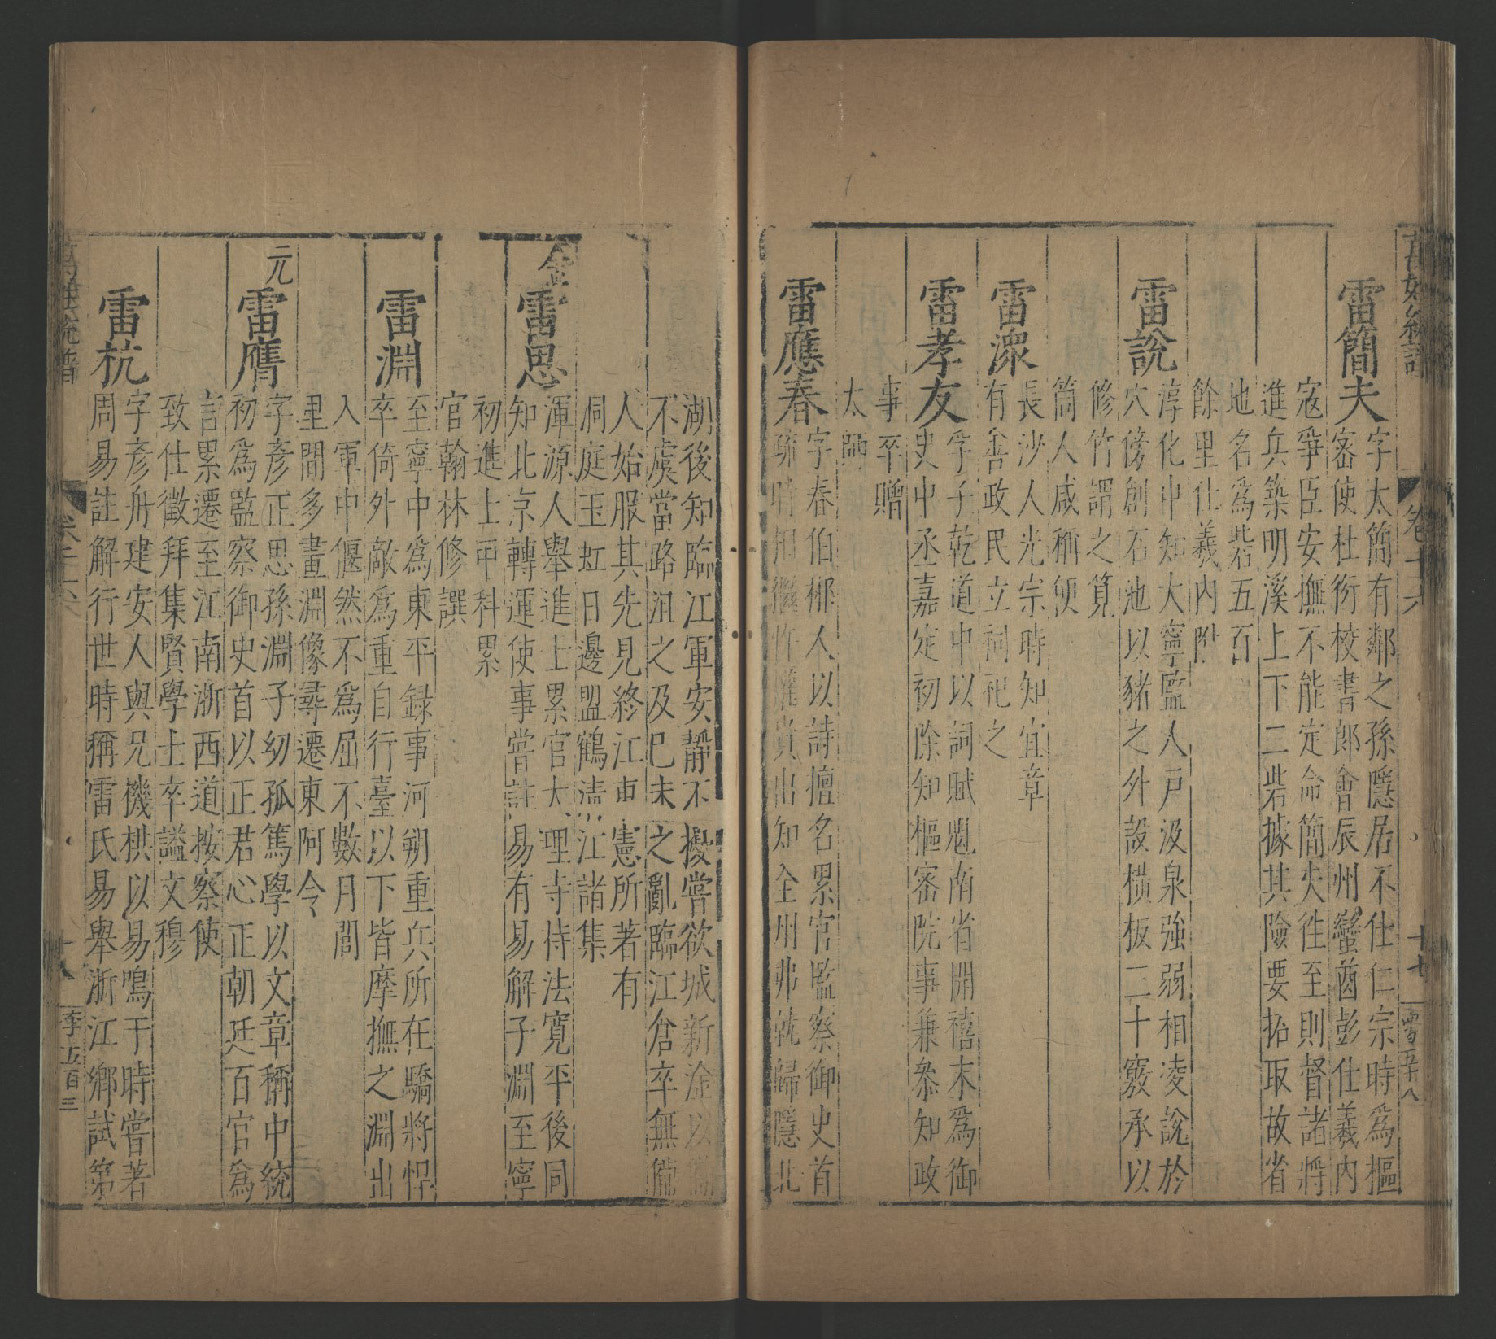 萬姓統譜 卷十六 十七
雷簡夫
字太簡有鄰之孫隱居不仕仁宗時爲樞
密使杜衍校書郎會辰州蠻酋彭仕羲内
寇爭臣安撫不能定命簡夫徃至則督諸將
進兵築明溪上下二砦據其險要拓取故省
地名爲砦五百
餘里仕羲内附
雷說
淳化中知大寧監人戸汲泉強弱相凌說於
穴傍創石池以豬之外設橫板二十竅承以
修竹謂之筧
筒人咸稱便
雷潨
長沙人光宗時知宜章
有善政民立祠祀之
雷孝友
孚子乾道中以詞賦魁南省開禧末爲御
史中丞嘉定初除知樞密院事兼叅知政
事卒贈
太師
雷應春
字春伯郴人以詩擅名累官監察御史首
疏時相繼忤權貴出知全州弗就歸隱北
湖後知臨江軍安靜不擾嘗欲城新淦以
不虞當路沮之及己未之亂臨江倉卒無
人始服其先見終江東憲所著有
洞庭玉虹日邊盟鶴清江諸集
金
雷思
渾源人舉進士累官大理寺侍法寛平後同
知北京轉運使事嘗註易有易解子淵至寧
初進士甲科累
官翰林修撰
雷淵
至寧中爲東平録事河朔重兵所在驕將悍
卒倚外敵爲重自行臺以下皆摩撫之淵出
入軍中偃然不爲屈不數月閭
里間多畫淵像尋遷東阿令
元
雷膺
字彥正思孫淵子幼孤篤學以文章稱中統
初爲監察御史首以正君心正朝廷百官爲
言累遷至江南浙西道按察使
致仕徵拜集賢學士卒謚文穆
雷杭
字彥舟建安人與兄機栱以易鳴于時嘗著
周易註解行世時稱雷氏易舉浙江鄉試第
萬姓統譜 十八